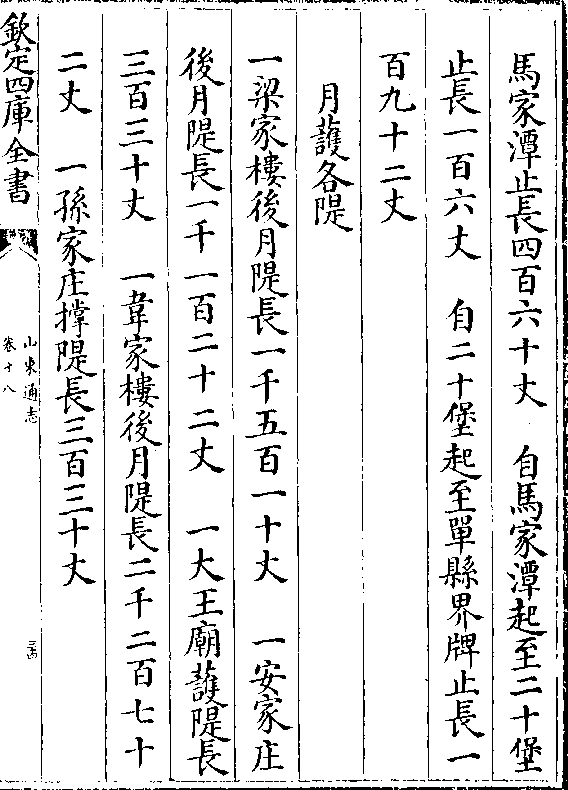 馬家潭止長四百六十丈　自馬家潭起至二十堡
止長一百六丈　自二十堡起至單縣界牌止長一
百九十二丈
月䕶各隄
一梁家樓後月隄長一千五百一十丈　一安家庄
後月隄長一千一百二十二丈　一大王廟䕶隄長
三百三十丈　一韋家樓後月隄長二千二百七十
二丈　一孫家庄撑隄長三百三十丈
欽定四庫全書
山東通志
卷十八
三四